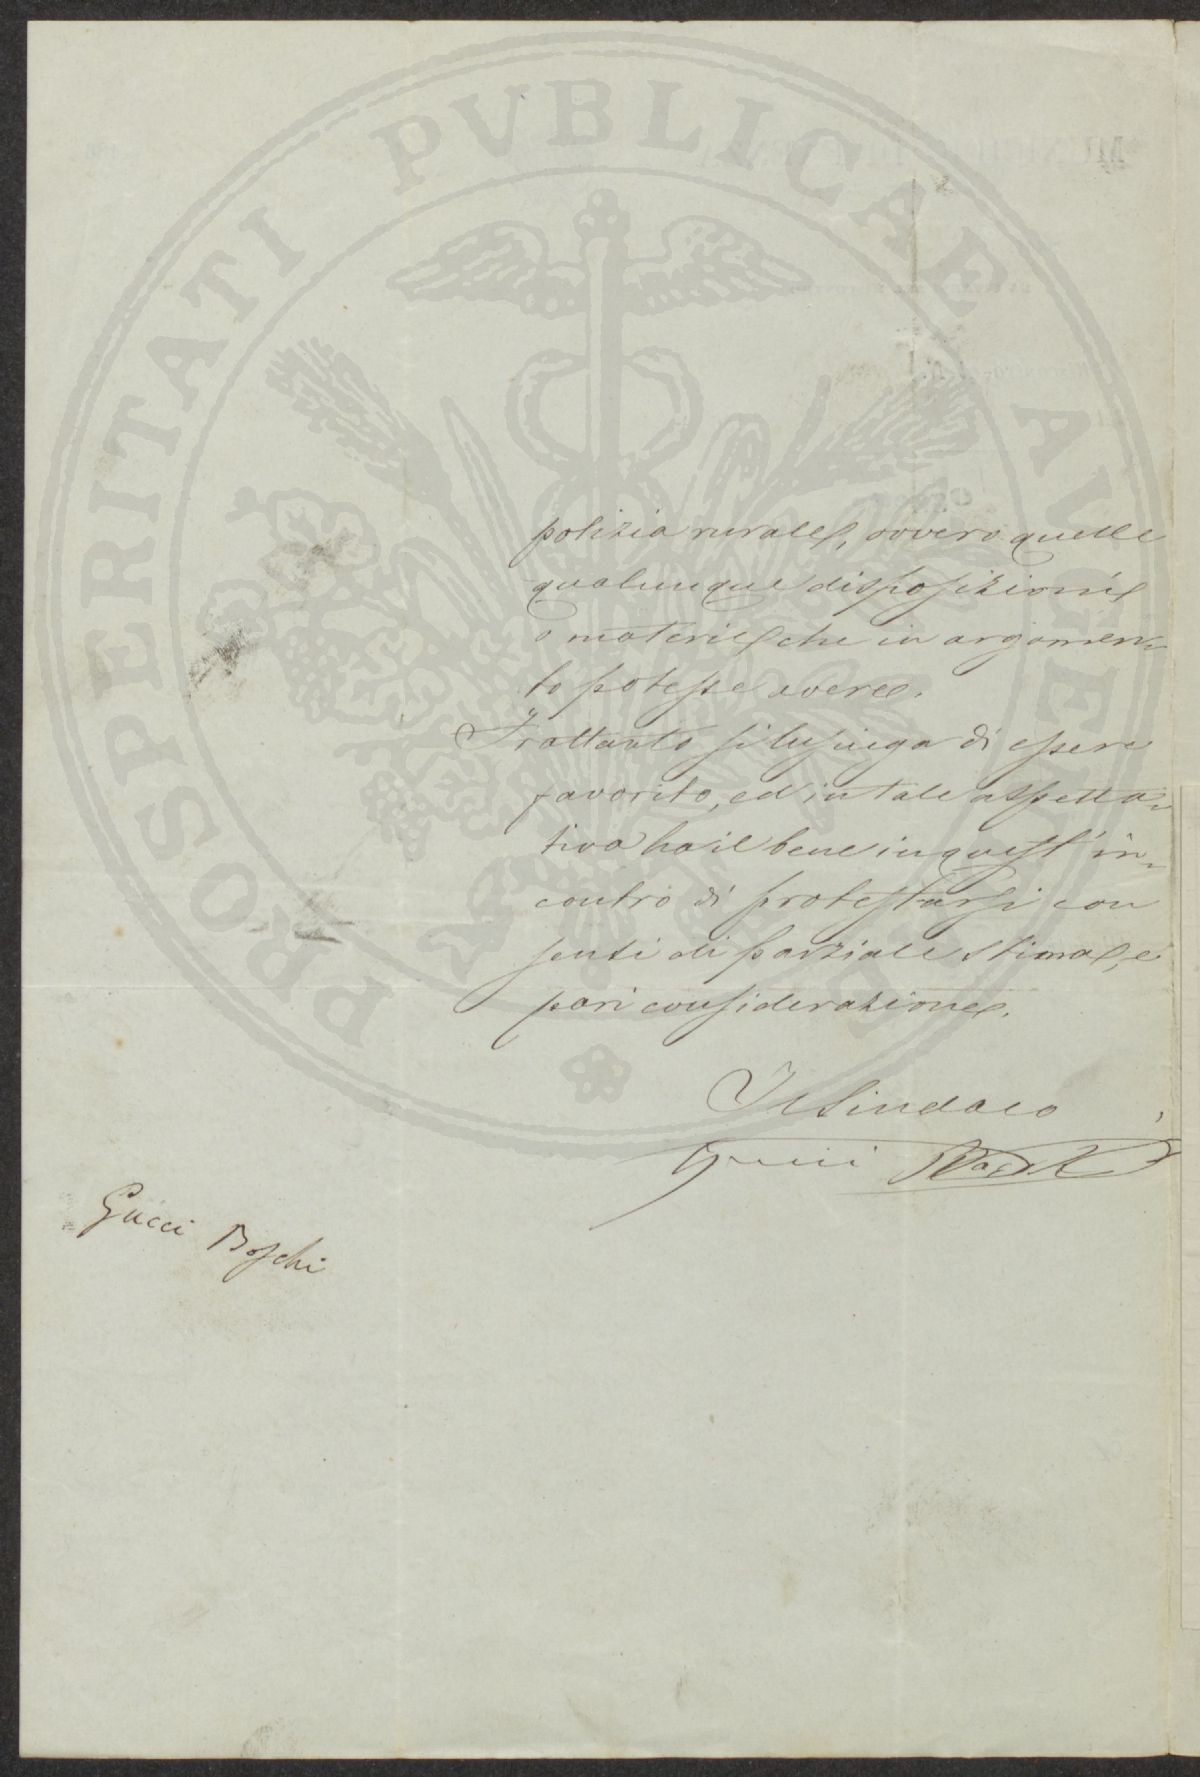 PROSPERITATI PVBLICAE AVGENDAE
polizia rurale, ovvero quelle
qualunque disposizioni
o materie che in argomen-
to potesse avere.
Frattanto si lusinga di essere
favorito, ed in tale aspetta-
tiva ha il bene in quest' in-
contro di protestarsi con
sensi di parziale stima, e
pari considerazione.
Il Sindaco
Gucci Boschi
Gucci Boschi